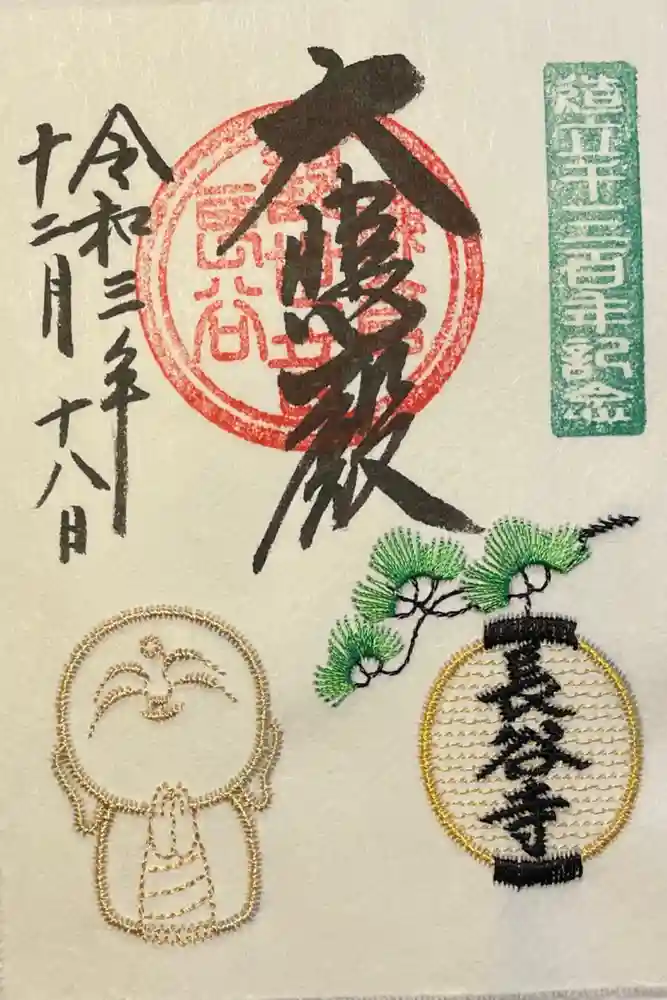 造立千三百年記念
大悲殿
令和三年
十二月十八日
長谷寺